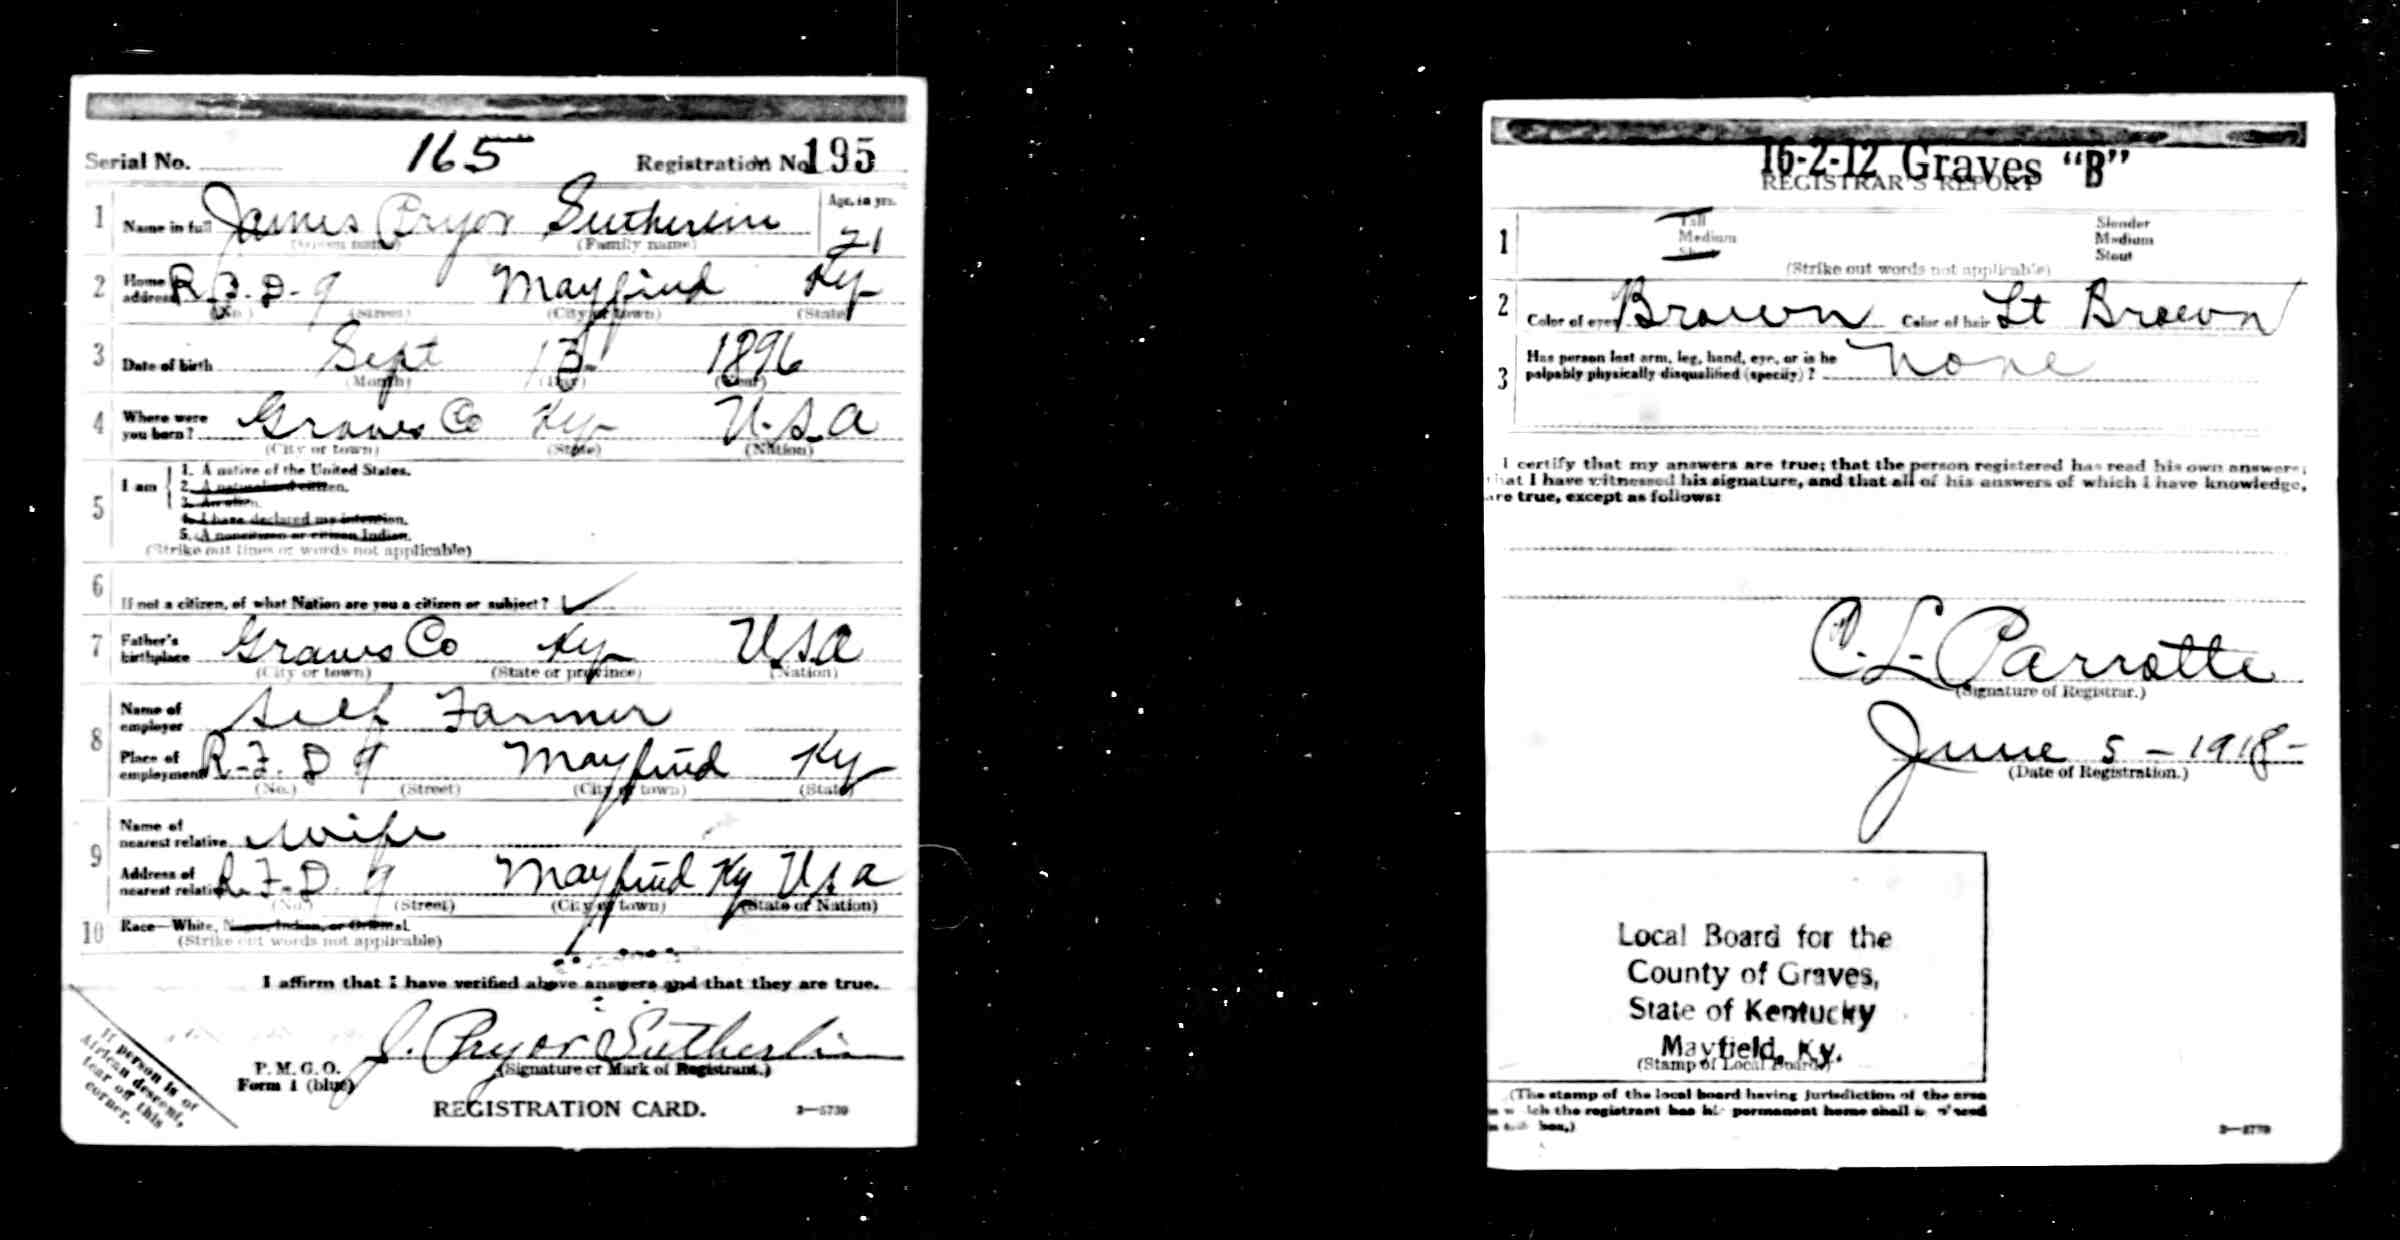 Serial No. 165 Registration No. 195
1 Name in full James Pryor Sutherlin Age, in yrs. 21
(Given name) (Family name)
2 Home address R.F.D. 9 Mayfield Ky
(No.) (Street) (City or town) (State)
3 Date of birth Sept 13 1896
(Month) (Day) (Year)
4 Where were you born? Graves Co Ky U.S.A
(City or town) (State) (Nation)
5 I am 1. A native of the United States.
2. A naturalized citizen.
3. An alien.
4. I have declared my intention.
5. A noncitizen or citizen Indian.
(Strike out lines or words not applicable)
6 If not a citizen, of what Nation are you a citizen or subject? ✓
7 Father's birthplace Graves Co Ky U.S.A
(City or town) (State or province) (Nation)
8 Name of employer Self Farmer
Place of employment R.F.D 9 Mayfield Ky
(No.) (Street) (City or town) (State)
9 Name of nearest relative Wife
Address of nearest relative R.F.D. 9 Mayfield Ky Usa
(No.) (Street) (City or town) (State or Nation)
10 Race—White, Negro, Indian, or Oriental.
(Strike out words not applicable)
I affirm that I have verified above answers and that they are true.
J. Pryor Sutherlin
P. M. G. O.
Form 1 (blue)
(Signature or Mark of Registrant.)
REGISTRATION CARD. 3—5739
If person is of
African descent,
tear off this
corner.
16-2-12 Graves "B"
REGISTRAR'S REPORT
1 Tall Slender
Medium Medium
Short Stout
(Strike out words not applicable)
2 Color of eyes Brown Color of hair Lt Brown
3 Has person lost arm, leg, hand, eye, or is he
palpably physically disqualified (specify)? None
I certify that my answers are true; that the person registered has read his own answers;
that I have witnessed his signature, and that all of his answers of which I have knowledge,
are true, except as follows:
C. L. Parrotte
(Signature of Registrar.)
June 5 - 1918-
(Date of Registration.)
Local Board for the
County of Graves,
State of Kentucky
Mayfield, Ky.
(Stamp of Local Board.)
(The stamp of the local board having jurisdiction of the area
in which the registrant has his permanent home shall be placed
in this box.)